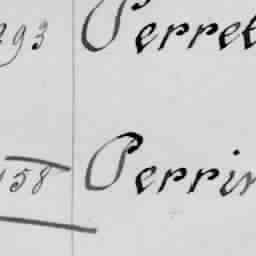 293 Perret
158 Perrin